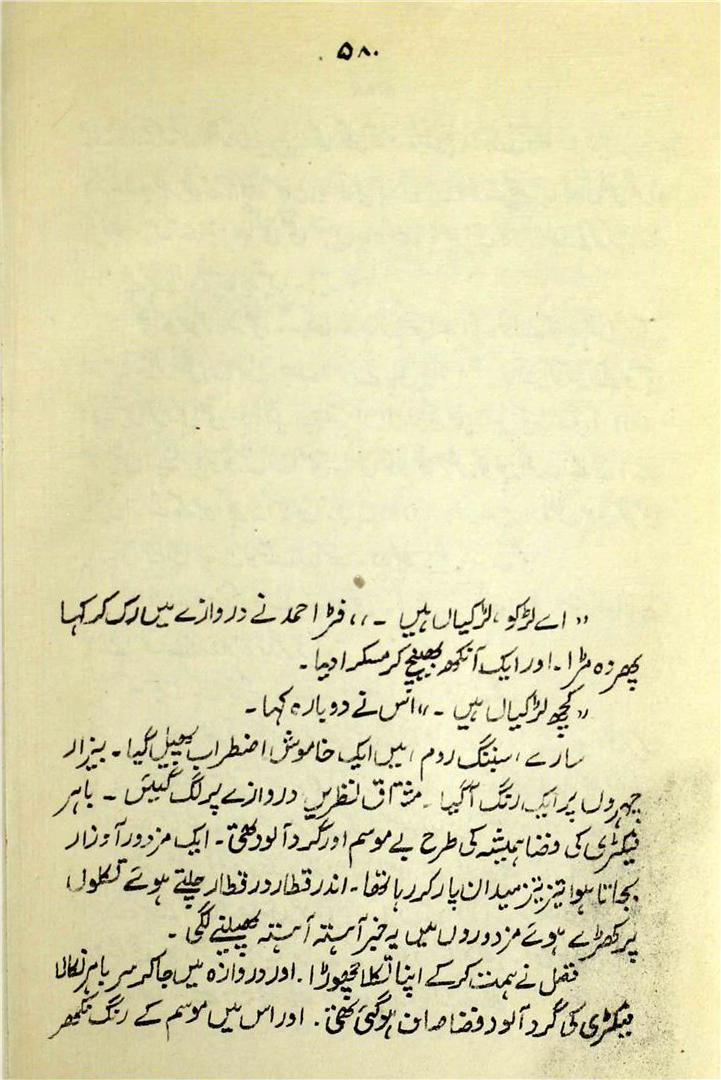 ۵۸۰
"اے لڑکو، لڑکیاں ہیں ـ" فٹر احمد نے دروازے میں رک کر کہا
پھر وہ مڑا۔ اور ایک آنکھ بھینچ کر مسکرا دیا۔
"کچھ لڑکیاں ہیں ـ" اس نے دوبارہ کہا۔
سارے، سپننگ روم، میں ایک خاموش اضطراب پھیل گیا۔ بیزار
چہروں پر ایک رنگ آگیا۔ مشتاق نظریں دروازے پر لگ گیئں ۔ باہر
فیکٹری کی فضا ہمیشہ کی طرح بے موسم اور گرد آلود تھی۔ ایک مزدور آوزار
بجاتا ہوا تیز تیز میدان پار کر رہا تھا۔ اندر قطار در قطار چلتے ہوئے تکلوں
پر کھڑے ہوئے مزدوروں میں یہ خبر آہستہ آہستہ پھیلنے لگی ۔
فضل نے ہمت کر کے اپنا تکلا چھوڑا۔ اور دروازہ میں جا کر سر باہر نکالا
فیکٹری کی گرد آلود فضا صاف ہو گئی تھی۔ اور اس میں موسم کے رنگ نکھر